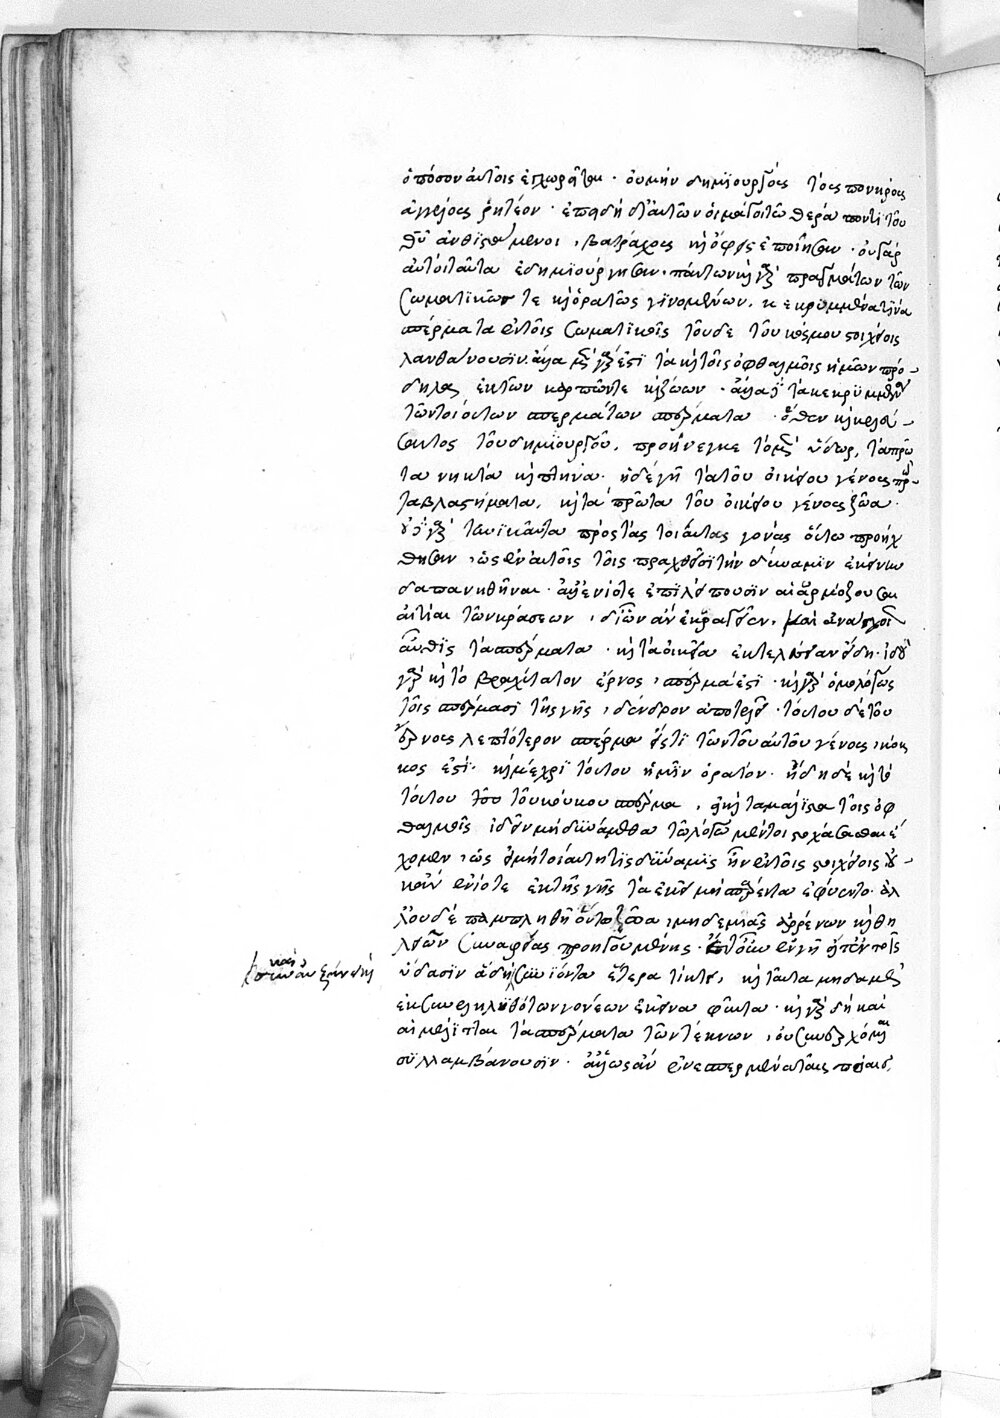 ὁπόσον αὐτοῖς ἐπιχωρεῖται· οὐ μὴν δημιουργοὺς τοὺς πονηροὺς
ἀγγέλους ῥητέον· ἐπειδὴ δι' αὐτῶν οἱ μάγοι τῶ θεράποντι τοῦ
θῦ ἀνθιστάμενοι, βατράχους κὶ ὄφεις ἐποίησαν· οὐ γὰρ
αὐτοὶ ταῦτα ἐδημιούργησαν· πάντων κὶ γὰρ πραγμάτων τῶν
σωματικῶς τε κὶ ὁρατῶς γινομένων, κεκρυμμένα τινὰ
σπέρματα ἐν τοῖς σωματικοῖς τοῦδε τοῦ κόσμου στοιχείοις
λανθάνουσιν. ἄλλα μὲν γάρ ἐστι τὰ κὶ τοῖς ὀφθαλμοῖς ἡμῶν πρό-
δηλα, ἐκ τῶν καρπῶν τε κὶ ζώων· ἄλλα δὲ τὰ κεκρυμμένα
τῶν τοιούτων σπερμάτων σπέρματα· ὅθεν κὶ κελεύ-
σαντος τοῦ δημιουργοῦ, προήνεγκε τὸ μὲν ὕδωρ, τὰ πρῶ
τα νηκτὰ κὶ πτηνά· ἡ δὲ γῆ τὰ τοῦ οἰκείου γένους πρῶ-
τα βλαστήματα, κὶ τὰ πρῶτα τοῦ οἰκείου γένους ζῶα·
οὐδὲ γὰρ τηνικαῦτα πρὸς τὰς τοιαύτας γονὰς οὕτω προήχ
θησαν, ὡς ἐν αὐτοῖς τοῖς προαχθεῖσι τὴν δύναμιν ἐκείνην
δαπανηθῆναι· ἀλλ' ἐνίοτε ἐπιλείπουσιν αἱ ἁρμόζουσαι
αἰτίαι τῶν κράσεων, δι' ὧν ἂν ἐκραγεῖεν, καὶ ἀνάσχοι
αὖθις τὰ σπέρματα· κὶ τὰ οἰκεῖα ἐκτελέσειαν εἴδη· ἰδοὺ
γὰρ κὶ τὸ βραχύτατον ἔρνος, σπέρμα ἐστί· κὶ γὰρ ὁμολόγως
τοῖς σπέρμασι τῆς γῆς, δένδρον ἀποτελεῖ· τούτου δὲ τοῦ
ἔρνους λεπτότερον σπέρμα ἔστι τῶν τοῦ αὐτοῦ γένους, κόκ
κος ἐστί· κὶ μέχρι τούτου ἡμῖν ὁρατόν· ἤδη δὲ κὶ τὸ
τούτου τοῦ κόκκου σπέρμα, εἰ κὶ τὰ μάλιστα τοῖς ὀφ
θαλμοῖς ἰδεῖν μὴ δυνάμεθα τῶ λόγω μέντοι στοχάσασθαι ἔ
χομεν, ὡς εἰ μὴ τοιαύτη τις δύναμις ἦν ἐν τοῖς στοιχείοις οὐ-
κ ἂν ἐνίοτε ἐκ τῆς γῆς τὰ ἐκεῖ μὴ σπαρέντα ἐφύοντο· ἀλ
λ' οὐδὲ παμπληθῆ οὕτω ζῶα, μηδεμιᾶς ἀρρένων κὶ θη
λειῶν συναφείας προηγουμένης· ἐν γῆ εἴτ' ἐν τοῖς
ὕδασιν ἃ δὴ συνιόντα ἕτερα τίκτει, κὶ ταῦτα μηδαμῶς
ἐκ συνεληλυθότων γονέων ἐκεῖνα φῦντα· κὶ γὰρ δὴ καὶ
αἱ μέλιτται τὰ σπέρματα τῶν τέκνων, οὐ συνερχόμεναι
συλλαμβάνουσιν· ἀλλ' ὡς ἂν ἐνεσπερμένα ταῖς